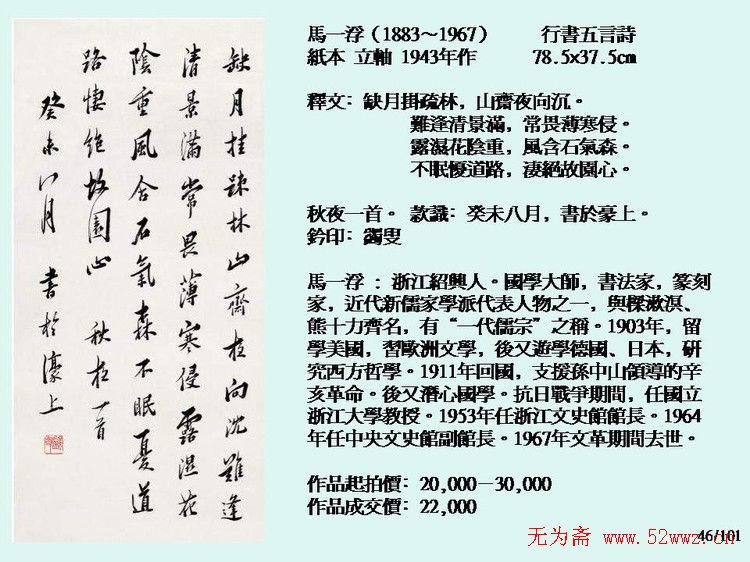 缺月挂疎林山齋夜向沈難逢
清景滿常畏薄寒侵露濕花
陰重風含石氣森不眠憂道
路悽絕故園心 秋夜一首
癸未八月 書於濠上
馬一浮（1883～1967） 行書五言詩
紙本 立軸 1943年作 78.5x37.5cm
釋文: 缺月掛疏林，山齋夜向沉。
難逢清景滿，常畏薄寒侵。
露濕花陰重，風含石氣森。
不眠懮道路，淒絕故園心。
秋夜一首。 款識: 癸未八月，書於豪上。
鈐印: 蠲叟
馬一浮 : 浙江紹興人。國學大師，書法家，篆刻
家，近代新儒家學派代表人物之一，與樑漱溟、
熊十力齊名，有“一代儒宗”之稱。1903年，留
學美國，習歐洲文學，後又遊學德國、日本，研
究西方哲學。1911年回國，支援孫中山領導的辛
亥革命。後又潛心國學。抗日戰爭期間，任國立
浙江大學教授。1953年任浙江文史館館長。1964
年任中央文史館副館長。1967年文革期間去世。
作品起拍價: 20,000－30,000
作品成交價: 22,000
无为斋 www.52wwz.cn
46/101